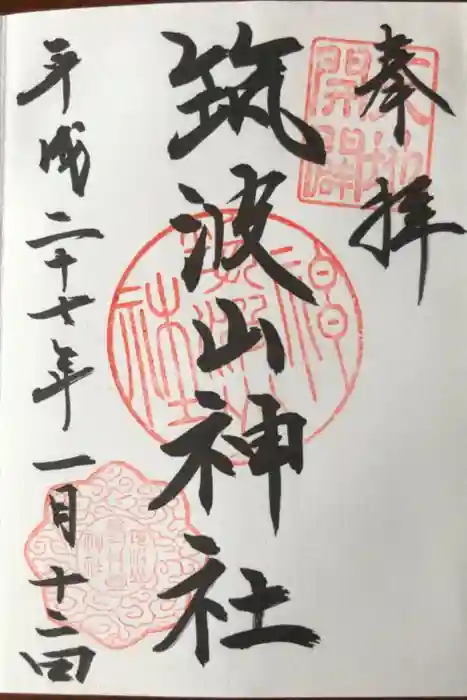 奉拝
天地開闢
筑波山神社
平成二十七年一月十二日